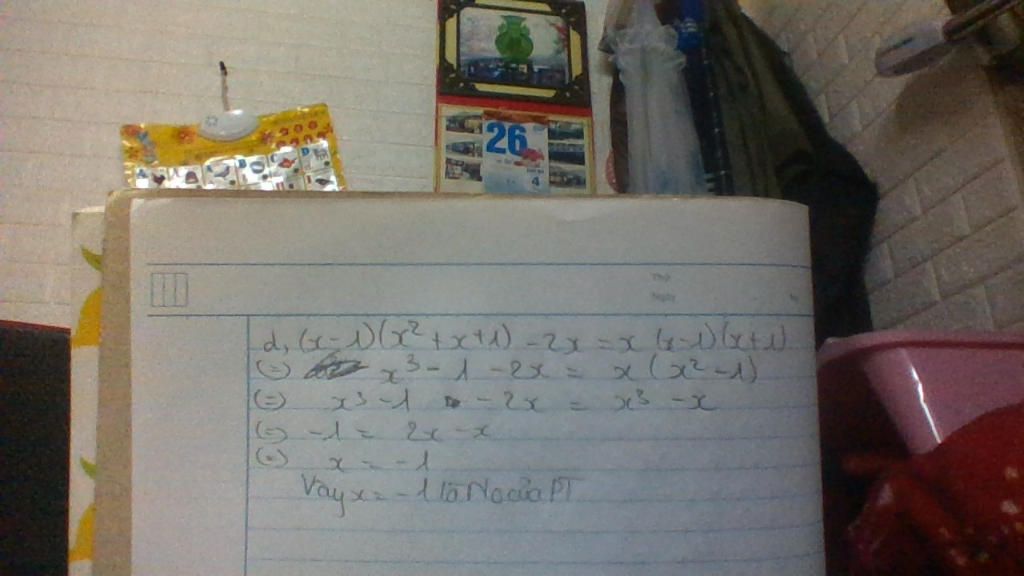 26
4
Thứ
Ngày
d, (x-1)(x² + x+1) - 2x = x (x-1)(x+1)
(=) x³ - 1 - 2x = x (x² - 1)
(=) x³ - 1 - 2x = x³ - x
(=) -1 = 2x - x
(=) x = -1
Vậy x = -1 là No của PT